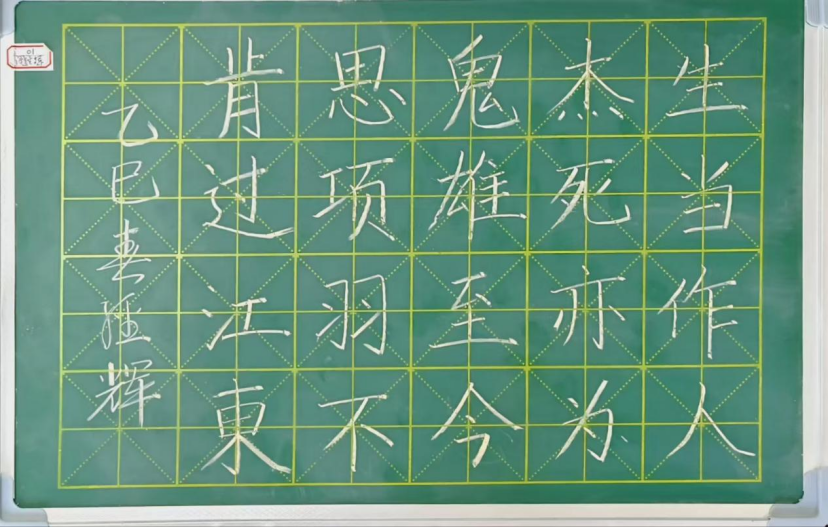 生当作人
杰死亦为
鬼雄至今
思项羽不
肯过江東
乙巳春辉
01